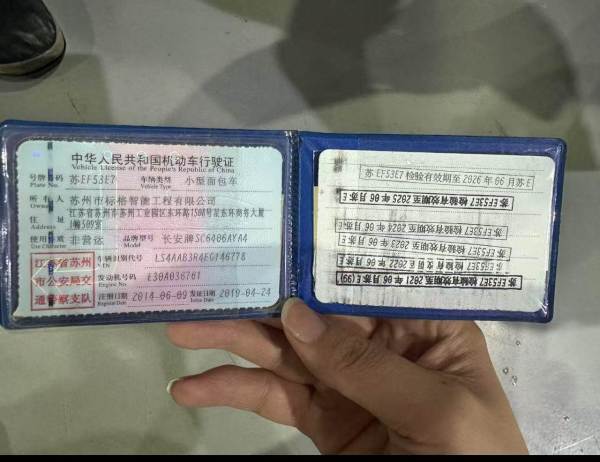 中华人民共和国机动车行驶证
Vehicle License of the People's Republic of China
号牌号码 苏EF53E7 车辆类型 小型面包车
Plate No. Vehicle Type
所有人 苏州市标榕智能工程有限公司
Owner
住址 江苏省苏州市苏州工业园区东环路1508号星东环商务大厦
Address 1幢509室
使用性质 非营运 品牌型号 长安牌SC6406AYA4
Use Character Model
江苏省苏州
市公安局交
通警察支队
车辆识别代号 LS4AAB3R4EG146778
VIN
发动机号码 E30A036761
Engine No.
注册日期 2014-06-09 发证日期 2019-04-24
Register Date Issue Date
苏EF53E7 检验有效期至2026年06月苏E
苏EF53E7 检验有效期至2025年06月苏E
苏EF53E7 检验有效期至2024年06月苏E
苏EF53E7 检验有效期至
苏EF53E7 检验有效期至2022年06月
苏EF53E7 检验有效期至2021年06月苏E (99)